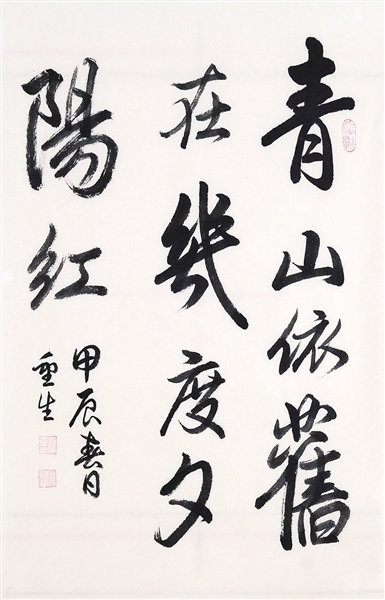 青山依舊
在幾度夕
陽紅
甲辰春日
重生